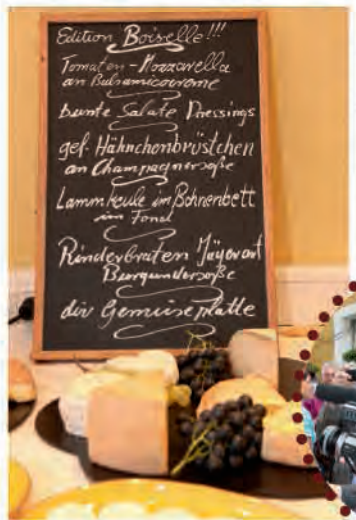 Edition Boiselle!!!
Tomaten-Mozzarella
an Balsamicocrome
bunte Salate Dressings
gef. Hähnchenbrüstchen
an Champagnersoße
Lammkeule im Bohnenbett
im Fond
Rinderbraten Jägerart
Burgundersoße
div Gemüseplatte